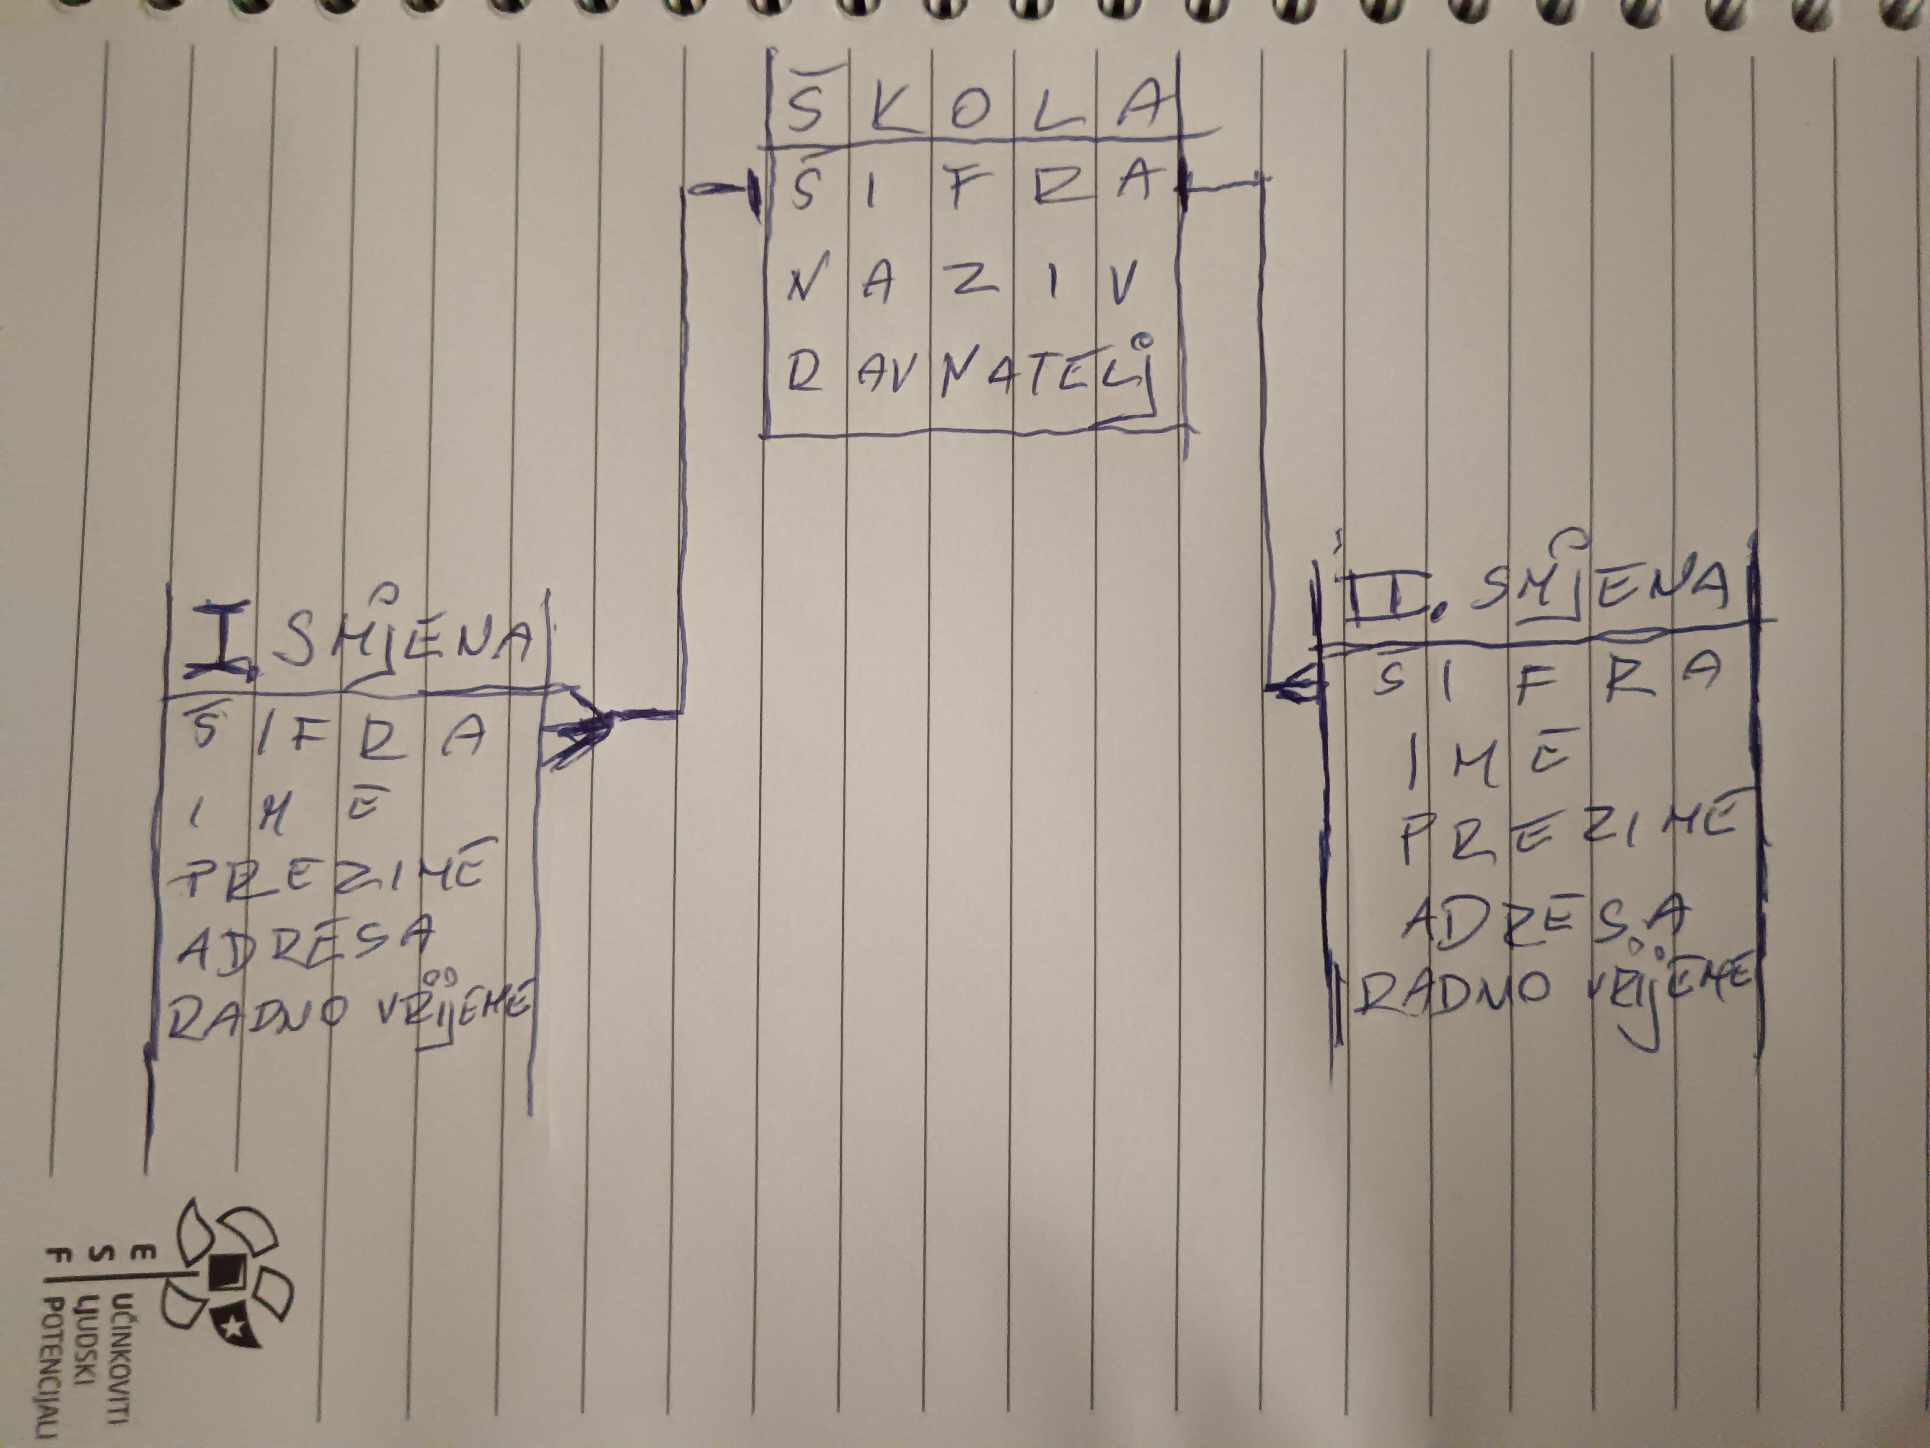 ŠKOLA
ŠIFRA
NAZIV
RAVNATELj
I. SMjENA
ŠIFRA
IME
PREZIME
ADRESA
RADNO VRijEME
II. SMjENA
ŠIFRA
IME
PREZIME
ADRESA
RADNO VRijEME
ESF
UČINKOVITI
LJUDSKI
POTENCIJALI